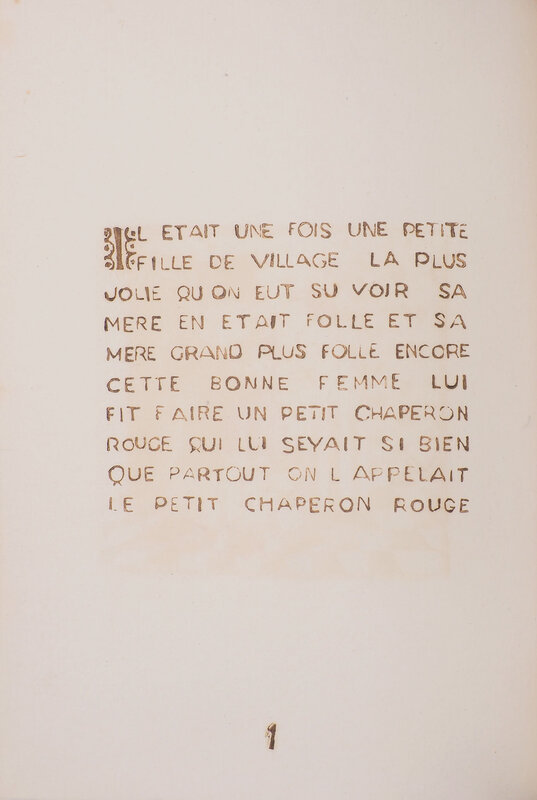 IL ETAIT UNE FOIS UNE PETITE
FILLE DE VILLAGE LA PLUS
JOLIE QU ON EUT SU VOIR SA
MERE EN ETAIT FOLLE ET SA
MERE GRAND PLUS FOLLE ENCORE
CETTE BONNE FEMME LUI
FIT FAIRE UN PETIT CHAPERON
ROUGE QUI LUI SEYAIT SI BIEN
QUE PARTOUT ON L APPELAIT
LE PETIT CHAPERON ROUGE
1